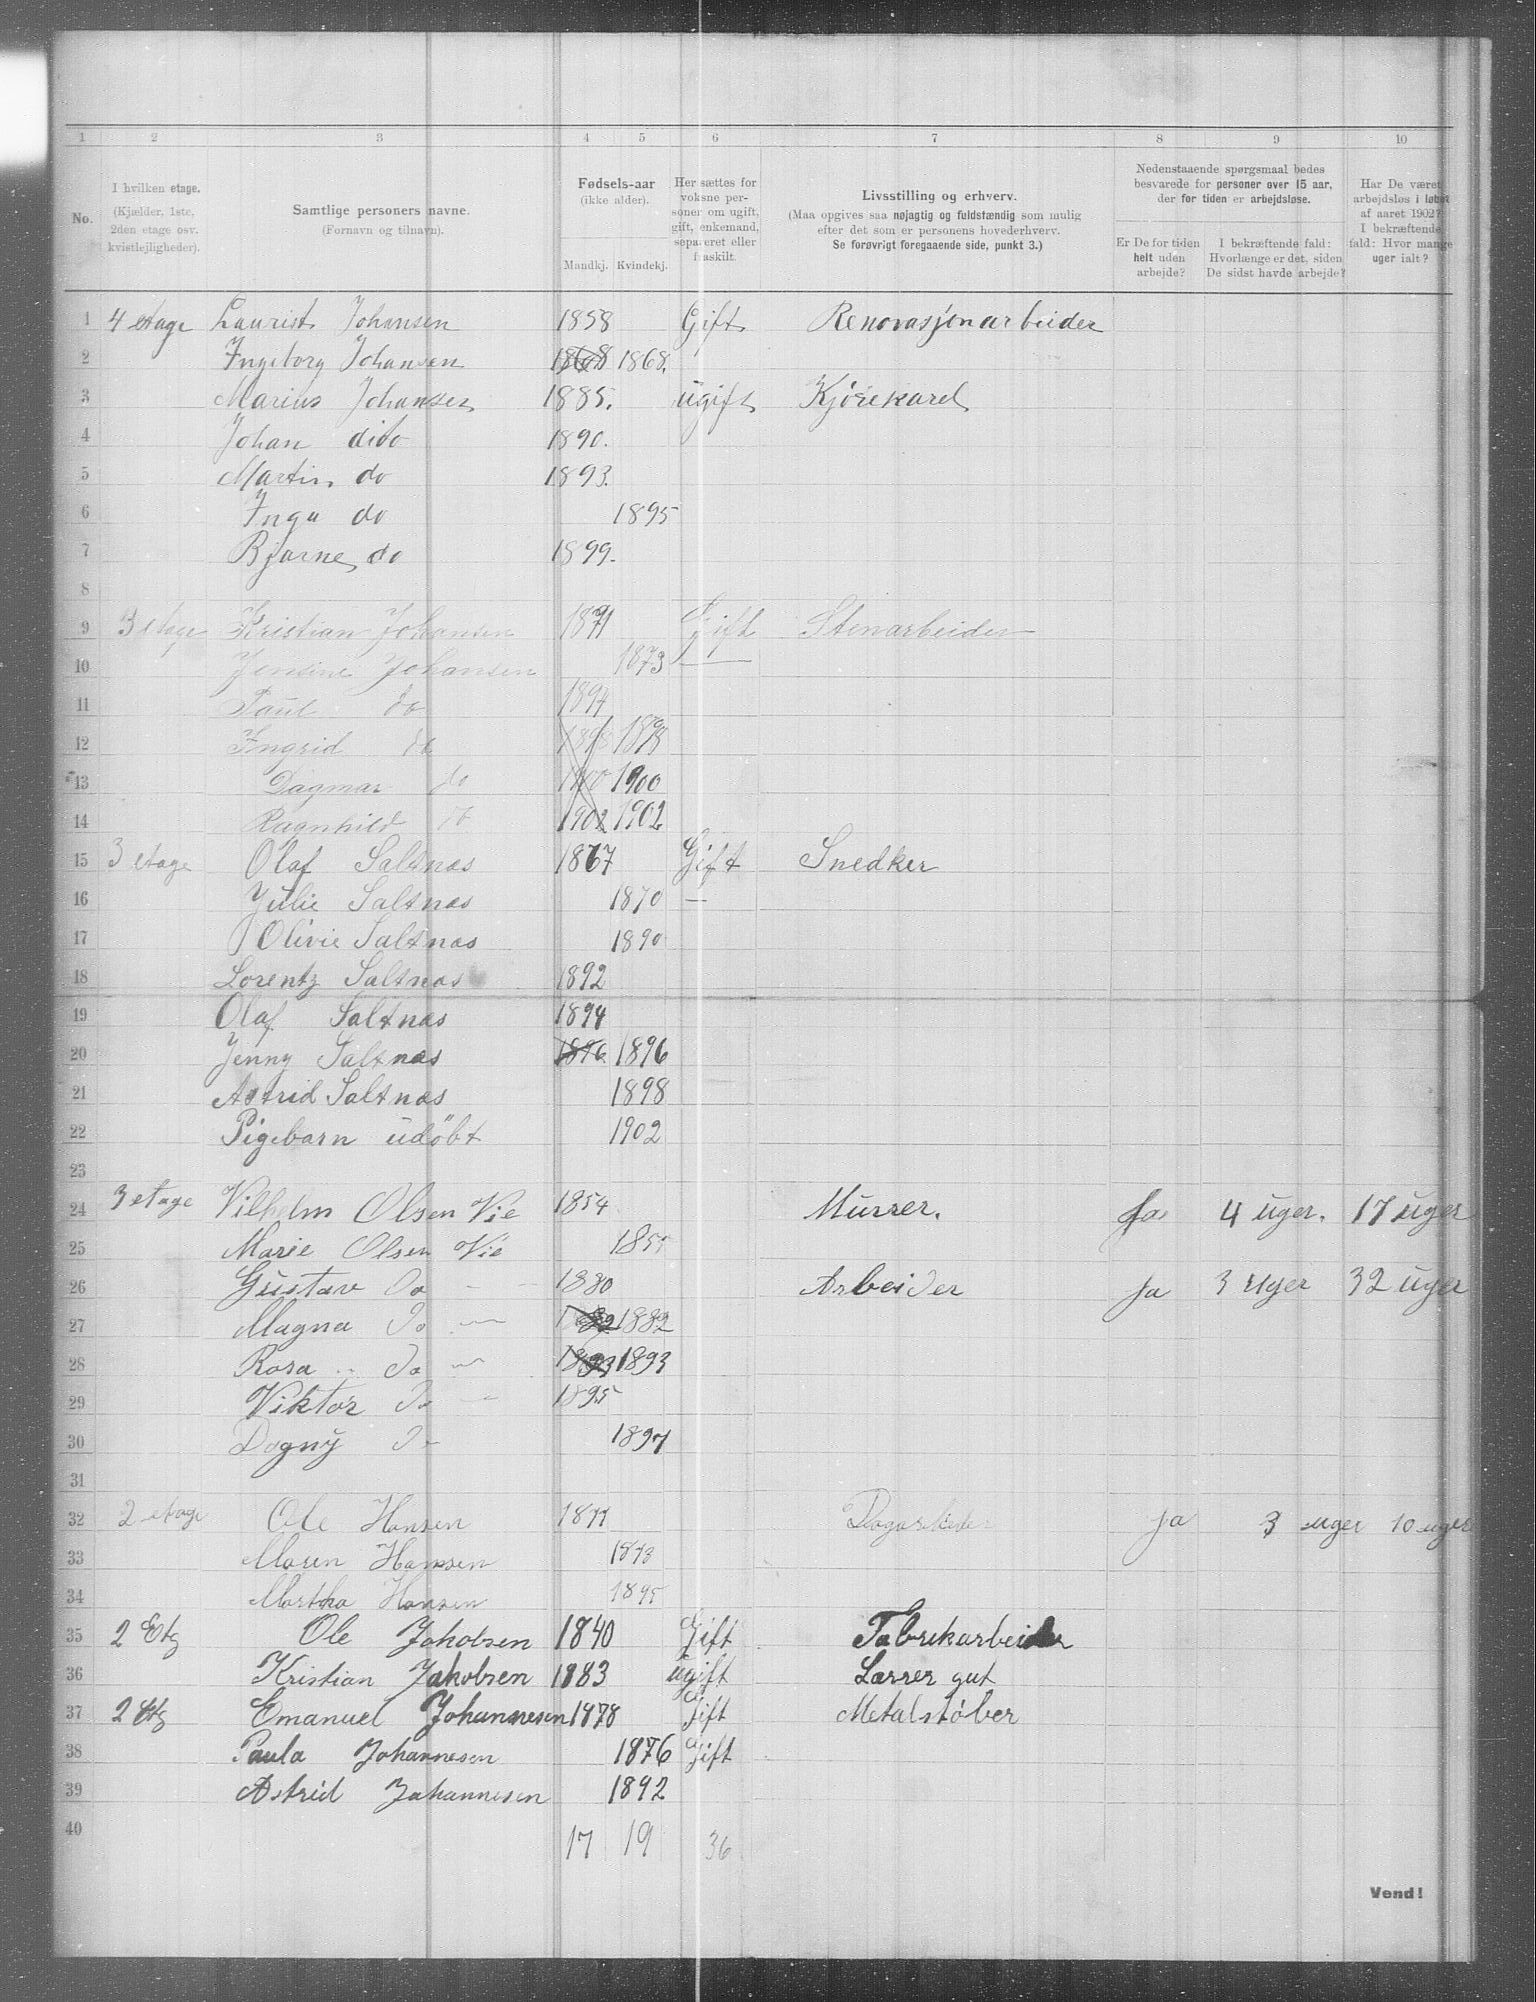 1 2 3 4 5 6 7 8 9 10
No.
I hvilken etage.
(Kjælder, 1ste,
2den etage osv.
kvistlejligheder).
Samtlige personers navne.
(Fornavn og tilnavn).
Fødsels-aar
(ikke alder).
Mandkj. Kvindekj.
Her sættes for
voksne per-
soner om ugift,
gift, enkemand,
separeret eller
fraskilt.
Livsstilling og erhverv.
(Maa opgives saa nøjagtig og fuldstændig som mulig
efter det som er personens hovederhverv.
Se forøvrigt foregaaende side, punkt 3.)
Nedenstaaende spørgsmaal bedes
besvarede for personer over 15 aar,
der for tiden er arbejdsløse.
Er De for tiden
helt uden
arbejde?
I bekræftende fald:
Hvorlænge er det, siden
De sidst havde arbejde?
Har De været
arbejdsløs i løbet
af aaret 1902?
I bekræftende
fald: Hvor mange
uger ialt?
1 4 etage Laurist Johansen 1858 Gift Renovasjonarbeider
2 Ingeborg Johansen 1868 1868.
3 Marius Johansen 1885. ugift Kjørekarel
4 Johan dito 1890.
5 Martin do 1893.
6 Inga do 1895
7 Bjarne do 1899.
8
9 3 etage Kristian Johansen 1871 Gift Stenarbeider
10 Jensine Johansen 1873 —
11 Paul do 1894
12 Ingrid do 1898 1898
13 Dagmar do 1900 1900
14 Ragnhild do 1902 1902
15 3 etage Olaf Saltnas 1867 Gift Snedker
16 Julie Saltnas 1870 —
17 Olivie Saltnas 1890
18 Lorentz Saltnas 1892
19 Olaf Saltnas 1894
20 Jenny Saltnas 1896 1896
21 Astrid Saltnas 1898
22 Pigebarn udöbt 1902
23
24 3 etage Vilhelm Olsen Vie 1854 Murrer. Ja 4 uger. 17 uger
25 Marie Olsen Vie
26 Gustav Do — — 1880 Arbeider Ja 3 uger 32 uger
27 Magna Do — 1882 1882
28 Rosa Do — 1893 1893
29 Viktor Do — 1895
30 Dagny Do 1897
31
32 2 etage Ole Hansen 1871 Dagarbeider ja 3 uger 10 uger
33 Maren Hansen 1873
34 Martha Hansen 1895
35 2 Etg Ole Jakobsen 1840 Gift Fabrikarbeider
36 Kristian Jakobsen 1883 ugift Lærrer gut
37 2 Etg Emanuel Johannesen 1878 Gift Metalstøber
38 Paula Johannesen 1876 Gift
39 Astrid Johannesen 1892
40 17 19 36
Vend!